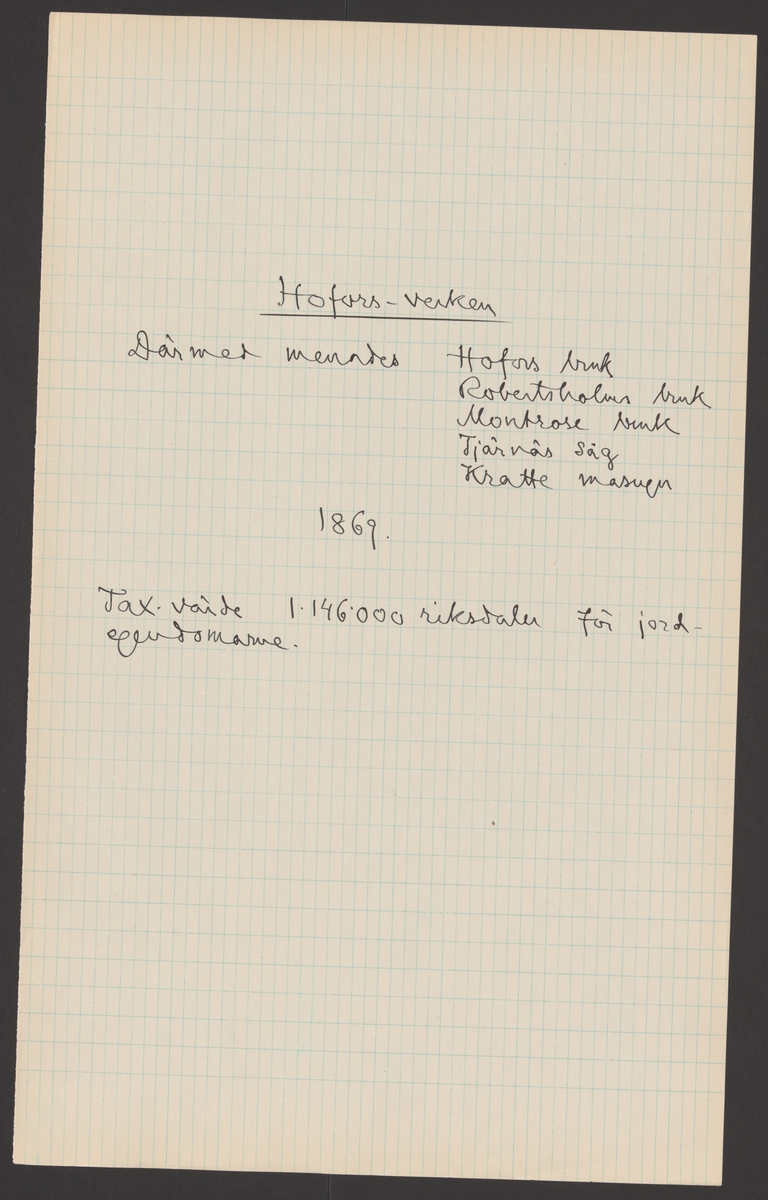 Hofors-verken
Därmed menades Hofors bruk
Robertsholms bruk
Montrose bruk
Tjärnäs såg
Kratte masugn
1869.
Tax. värde 1.146.000 riksdaler för jord-
egendomarne.